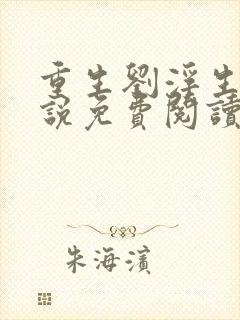 重生劉淫生
說免費閱讀
朱海濱